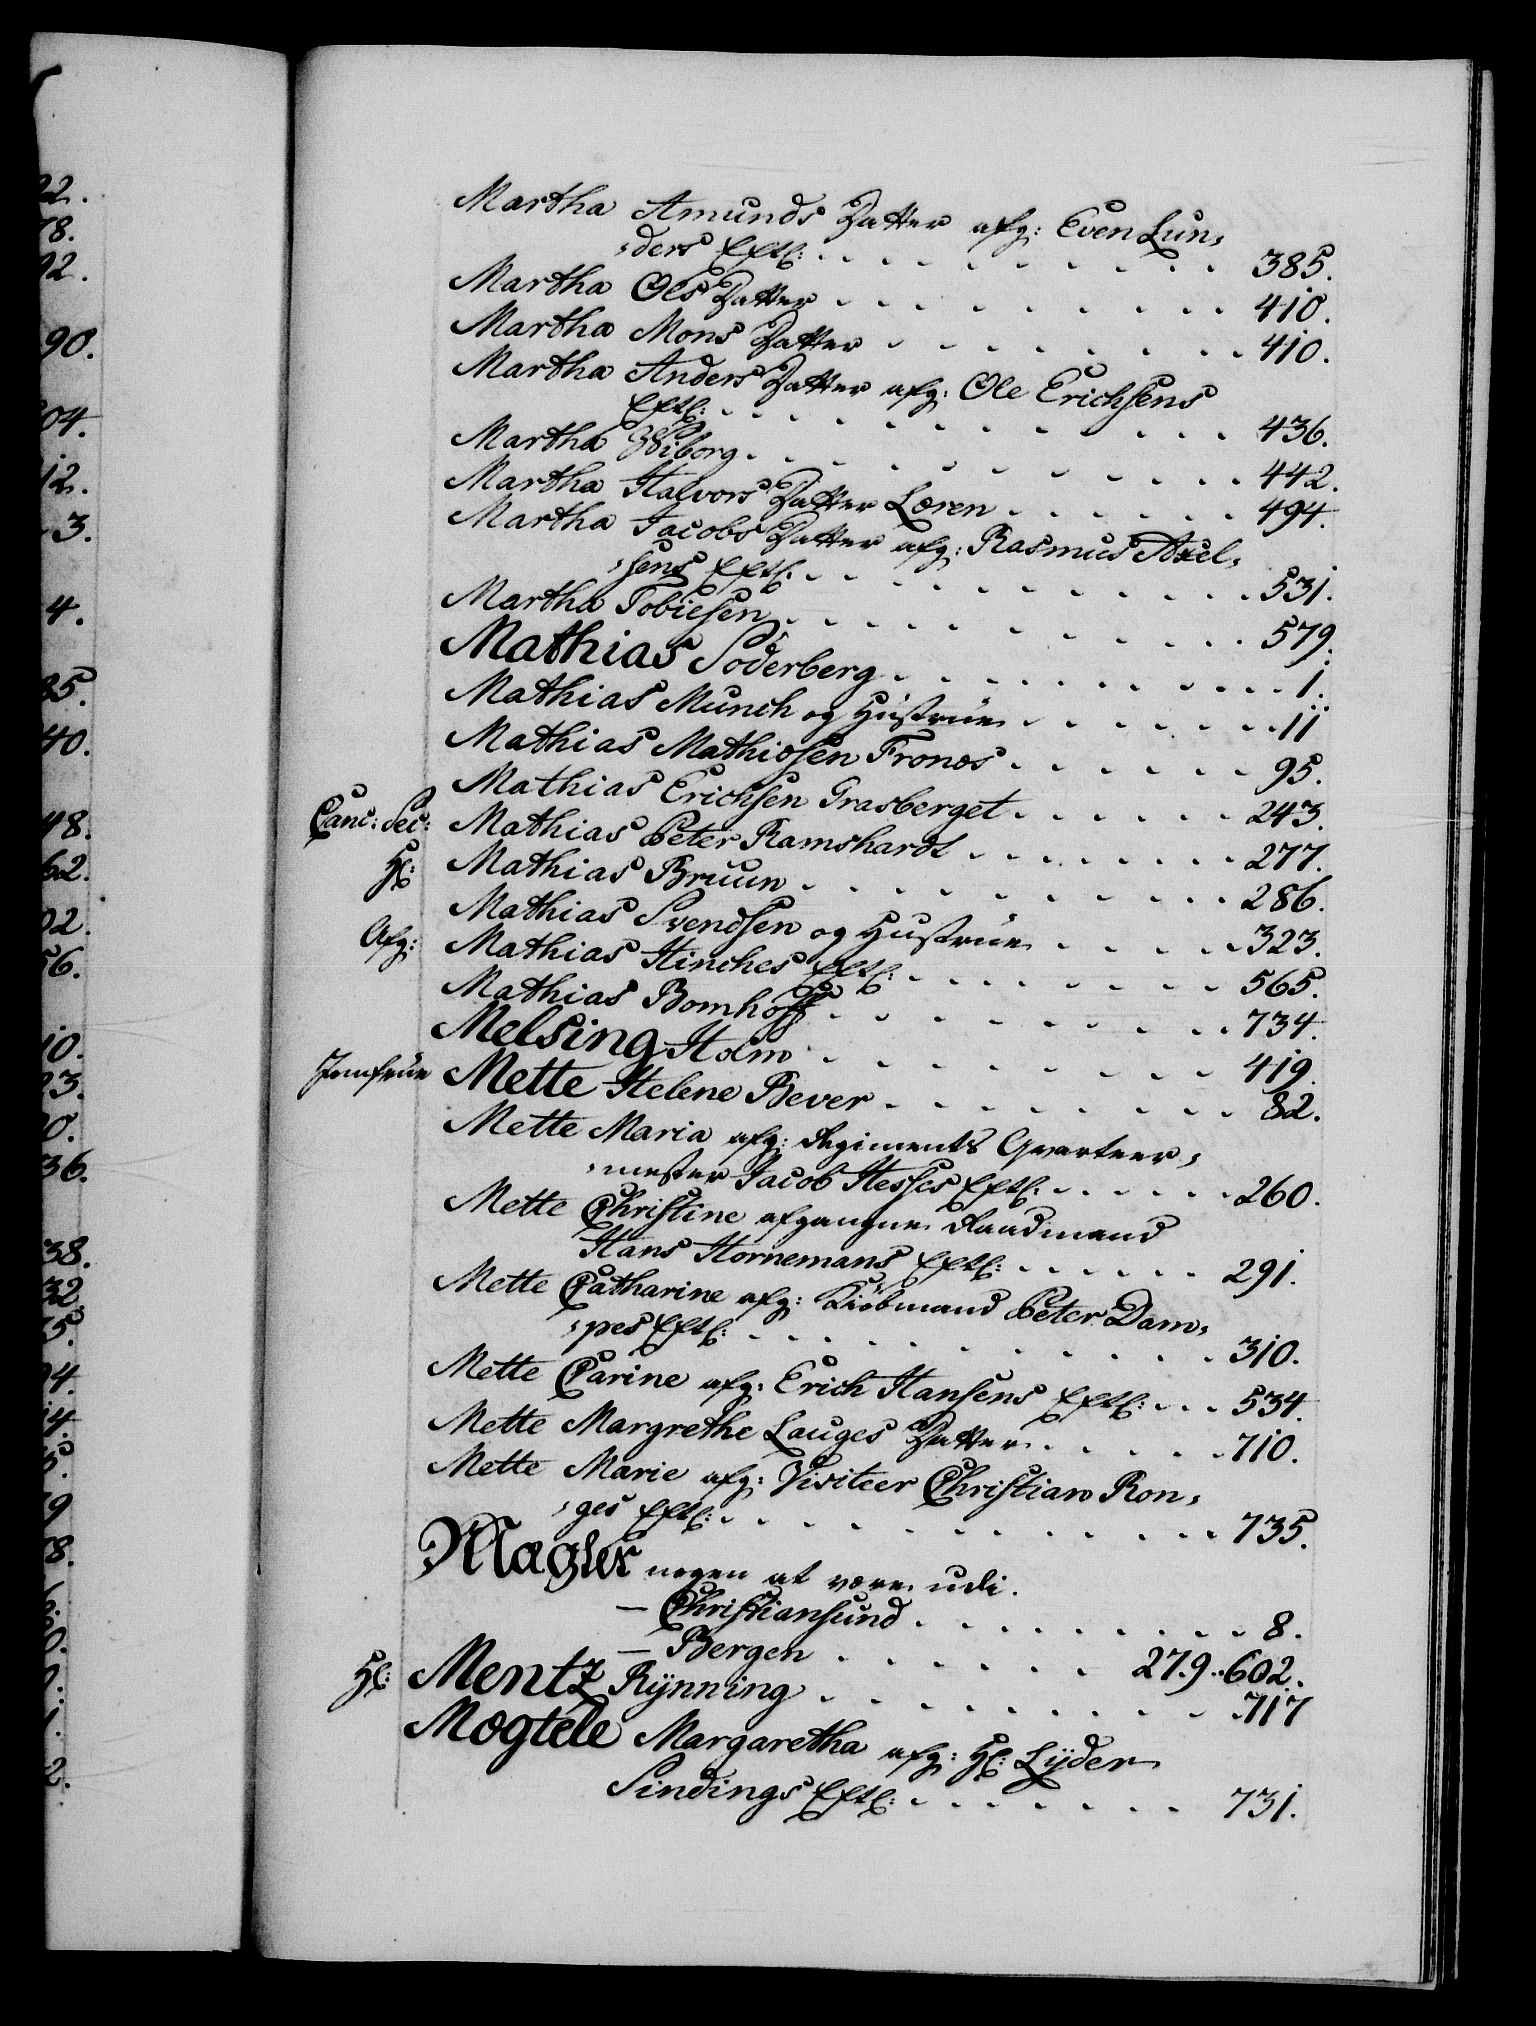 Martha Amunds Datter afg: Even Lun-
-ders Eftl: 385.
Martha Ols Datter 410.
Martha Mons Datter 410.
Martha Anders Datter afg: Ole Erichsens
Eftl: 436.
Martha Wiborg 442.
Martha Halvors Datter Løren 494.
Martha Jacobs Datter afg: Rasmus Axel-
-sens Eftl: 531.
Martha Tobiesen 579.
Mathias Söderberg 1.
Mathias Munch og Hustrue 11
Mathias Mathiesen Fronæs 95.
Mathias Erichsen Grasberget 243.
Canc: Sec: Mathias Peter Ramshardt 277.
Hr: Mathias Bruun 286.
Mathias Svendsen og Hustrue 323.
Afg: Mathias Hinches Eftl: 565.
Mathias Bomhoff 734.
Melsing Holm 419.
Jomfrue Mette Helene Bever 82.
Mette Maria afg: Regiments Qvarteer-
-mester Jacob Hesses Eftl: 260.
Mette Christine afgangne Raadmand
Hans Hornemans Eftl: 291.
Mette Catharine afg: Kiöbmand Peter Dam-
-pes Eftl: 310.
Mette Carine afg: Erich Hansens Eftl: 534.
Mette Margrethe Lauges Datter 710.
Mette Marie afg: Visiteer Christian Ron-
-ges Eftl: 735.
Mægler nogen at være udi.
— Christiansund 8.
— Bergen 279. 602.
Hr: Mentz Rÿnning 717
Mogtele Margaretha afg: Hr: Lÿder
Sindings Eftl: 731.